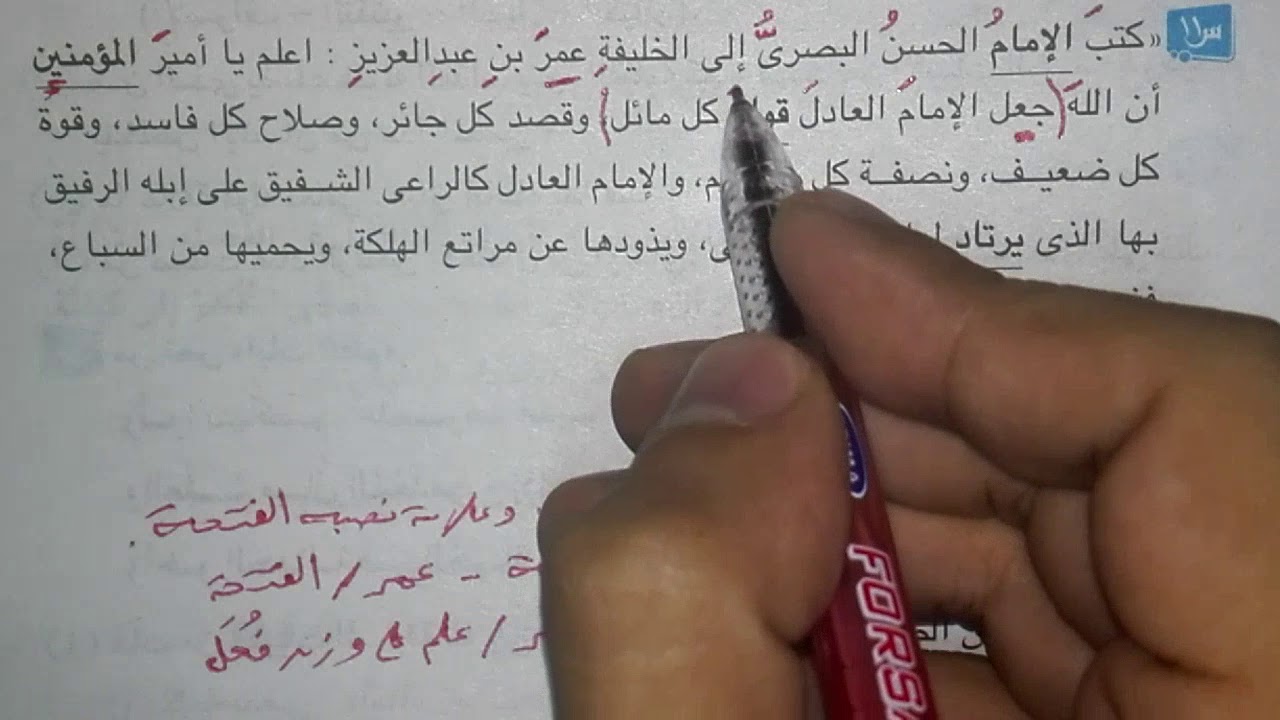 س١١
«كتبَ الإمامُ الحسنُ البصرىُّ إلى الخليفةِ عمرَ بنِ عبدِالعزيزِ : اعلم يا أميرَ المؤمنين
أن اللهَ (جعل الإمامَ العادلَ كل مائل) وقصد كل جائر، وصلاح كل فاسد، وقوةَ
كل ضعيف، ونصفة كل والإمام العادل كالراعى الشفيق على إبله الرفيق
بها الذى يرتاد ويذودها عن مراتع الهلكة، ويحميها من السباع،
وعلامة نصبه الفتحة.
- عمر / الفتحة
/ علم على وزن فُعَل
FORS